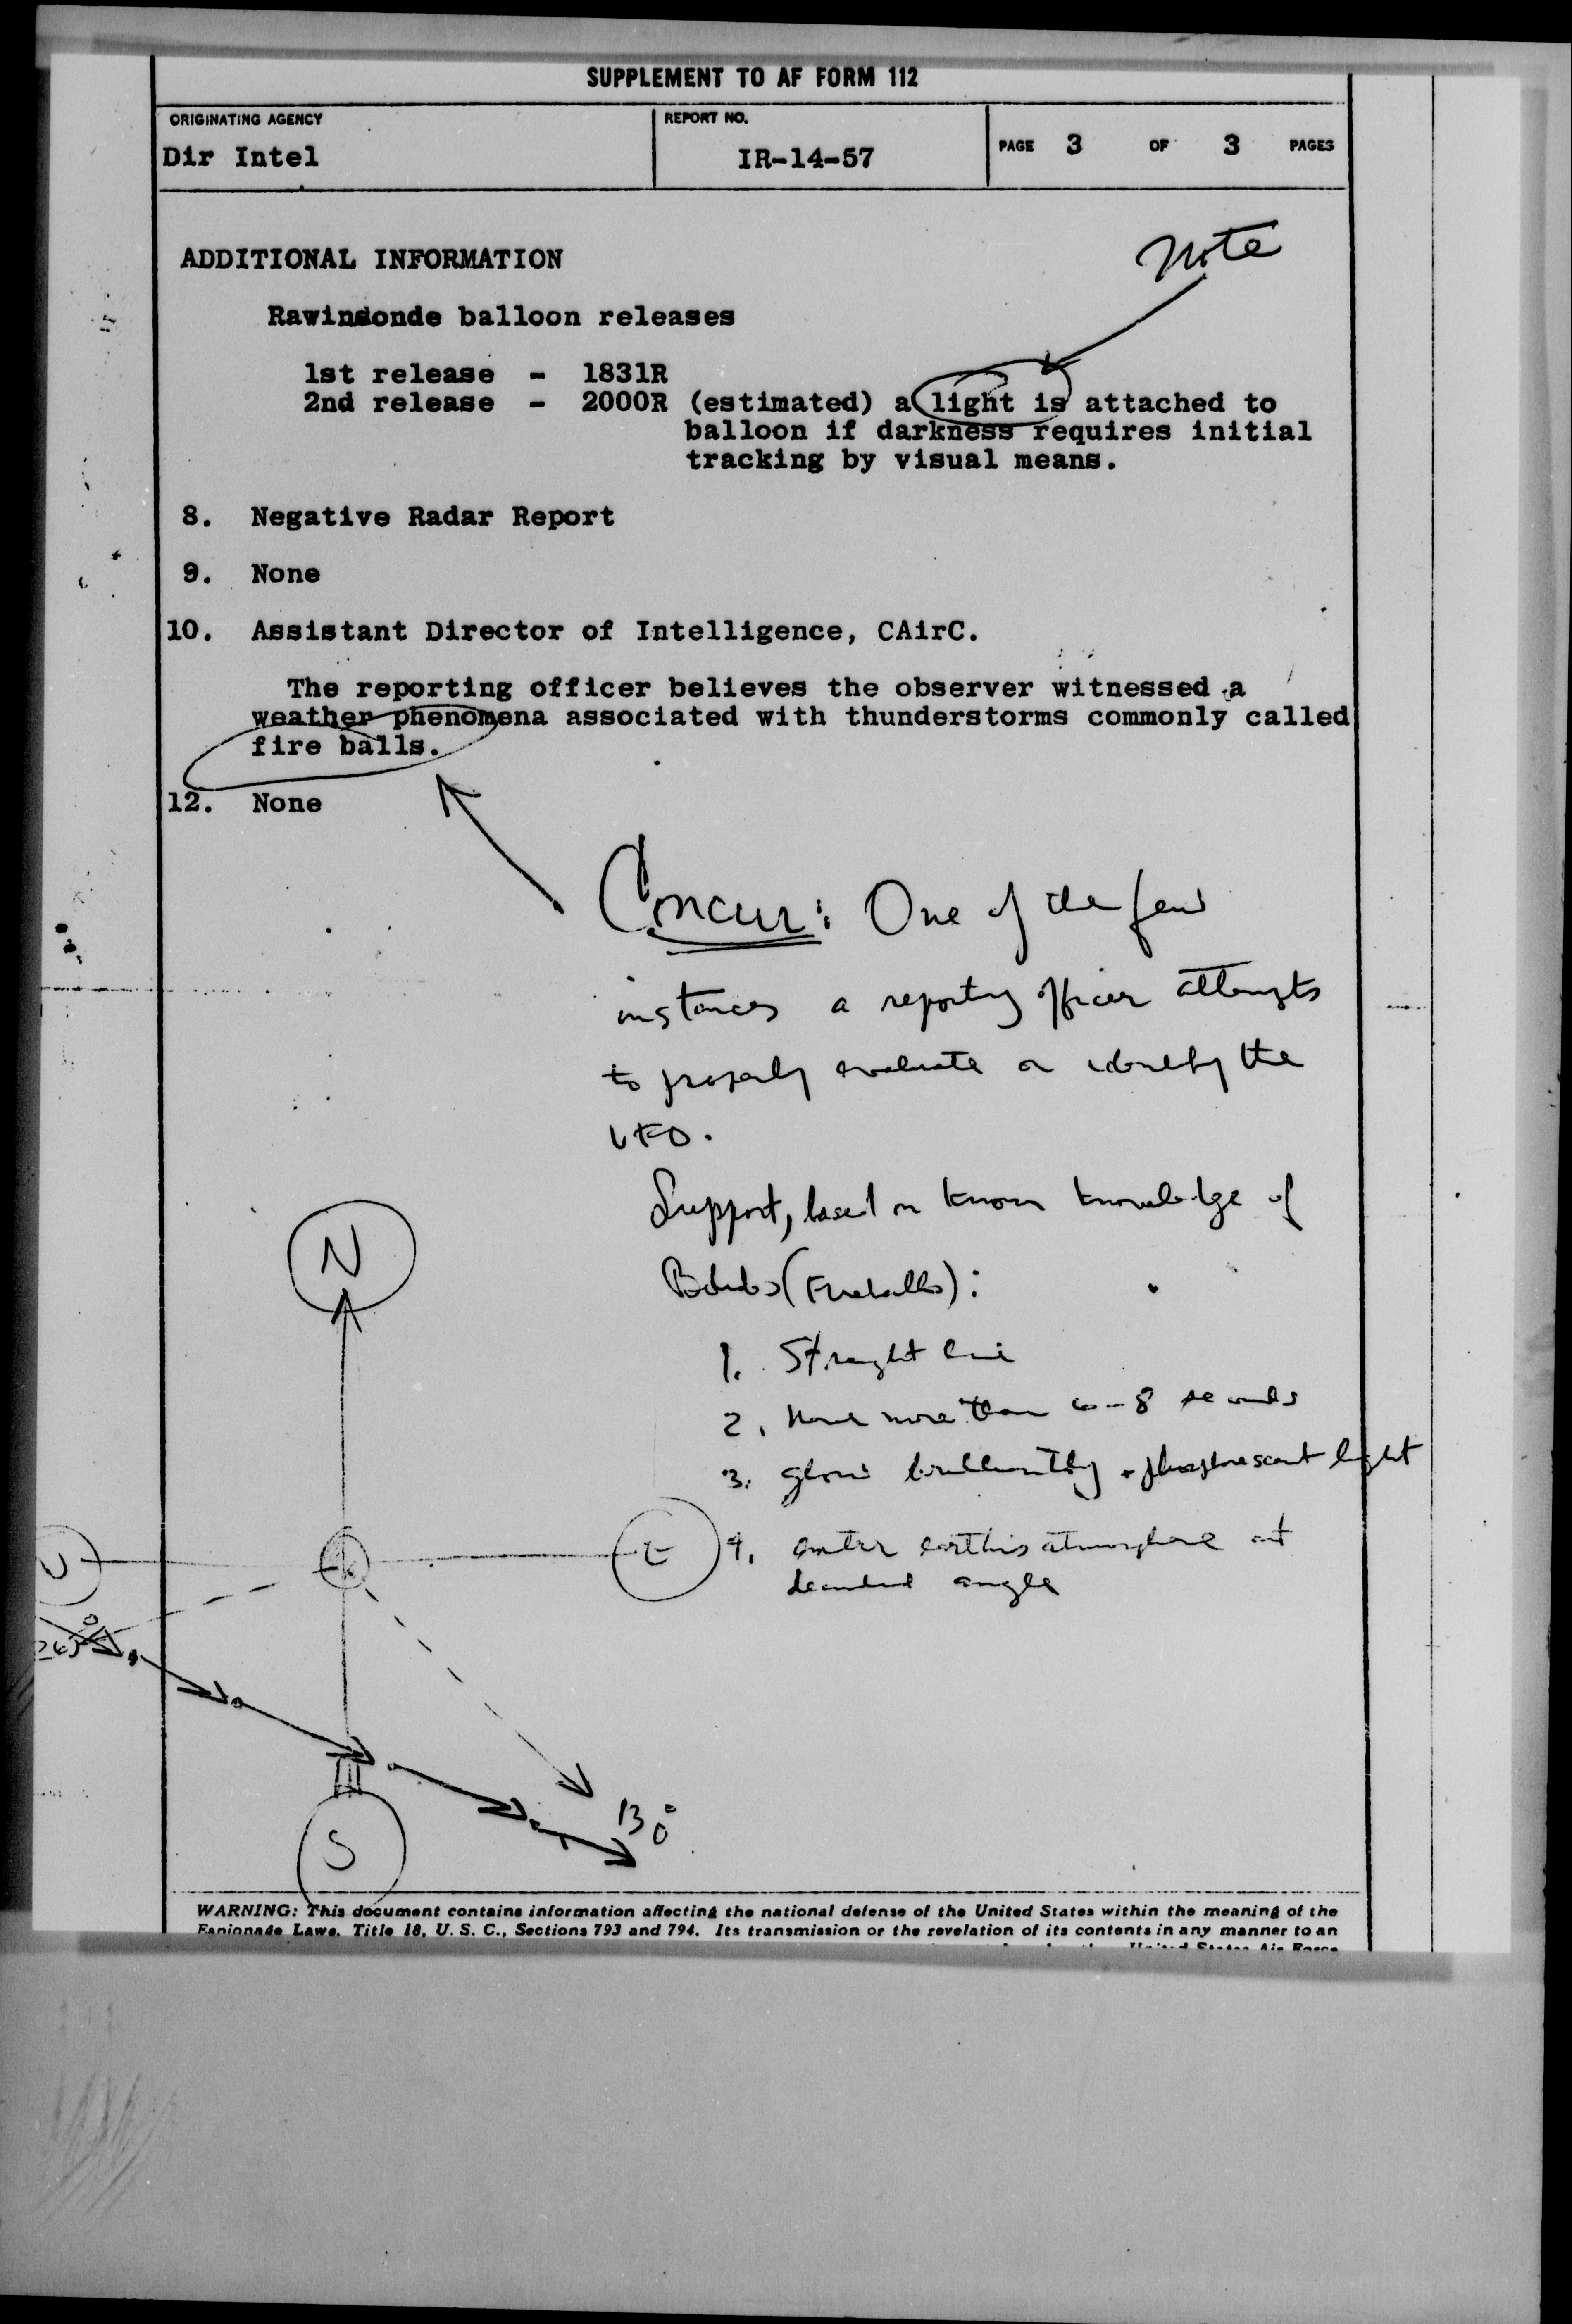 SUPPLEMENT TO AF FORM 112
ORIGINATING AGENCY
Dir Intel
REPORT NO.
IR-14-57
PAGE 3 OF 3 PAGES
Note
ADDITIONAL INFORMATION
Rawinsonde balloon releases
1st release - 1831R
2nd release - 2000R (estimated) a light is attached to
balloon if darkness requires initial
tracking by visual means.
8. Negative Radar Report
9. None
10. Assistant Director of Intelligence, CAirC.
The reporting officer believes the observer witnessed a
weather phenomena associated with thunderstorms commonly called
fire balls.
12. None
Concur: One of the few
instances a reporting officer attempts
to properly evaluate or identify the
UFO.
Support, based on known knowledge of
(Fireballs):
1. Straight line
2. more than 6-8 seconds
3. glow brilliantly phosphorescent light
4. enter earth's atmosphere at
angle
N
E
S
130°
WARNING: This document contains information affecting the national defense of the United States within the meaning of the
Espionage Laws, Title 18, U. S. C., Sections 793 and 794. Its transmission or the revelation of its contents in any manner to an
United States Air Force